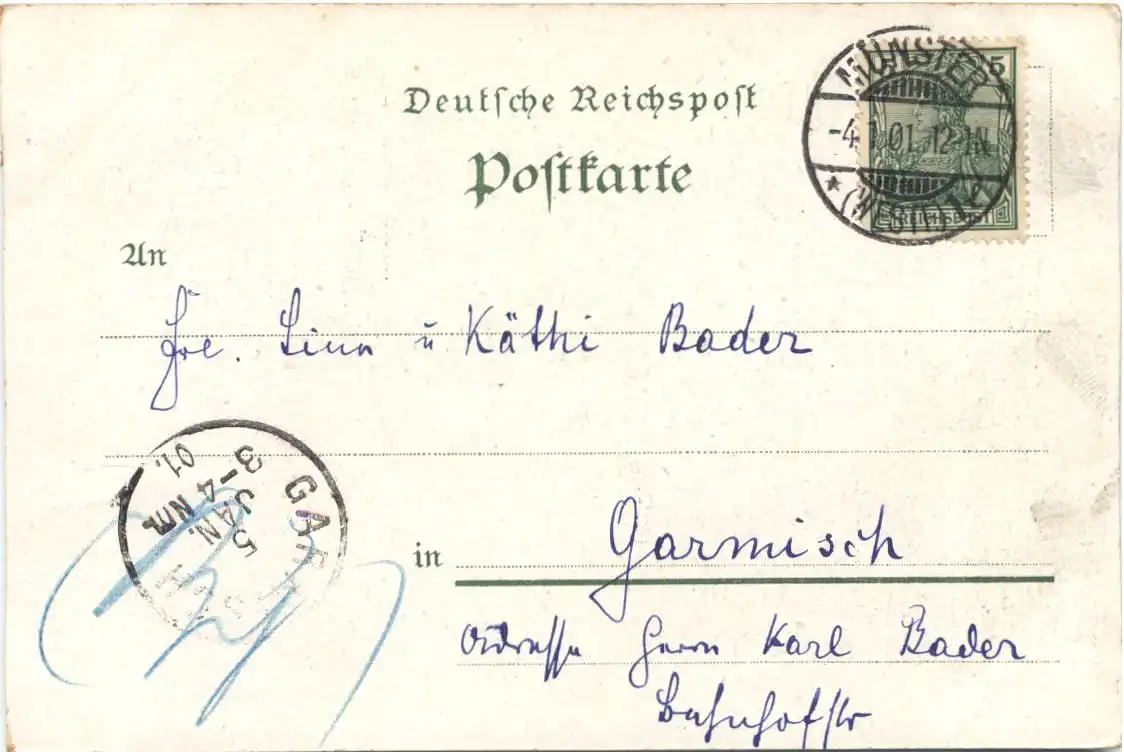 Deutsche Reichspost
Postkarte
MÜNSTER
5
-4.1.01.12-1N.
* (WESTF.) 1
REICHSPOST
An
Frl. Lina u Käthi Bader
GARMISCH
5 JAN.
3-4 Nm.
01.
in Garmisch
Adresse Herrn Karl Bader
Bahnhofstr